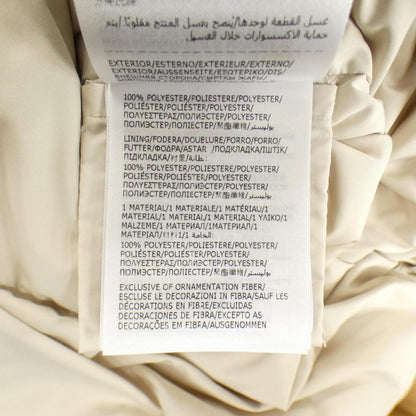 غسل القطعة لوحدها/ينصح بغسل المنتج مقلوبًا/يرجى
الاكسسوارات خلال الغسيل
EXTERIOR/ESTERNO/EXTERIEUR/EXTERIOR/
EXTERIOR/AUSSENSEITE/ΕΞΩΤΕΡΙΚΟ/DIS/
100% POLYESTER/POLIESTERE/POLYESTER/
POLIÉSTER/POLIÉSTER/POLYESTER/
ΠΟΛΥΕΣΤΕΡΑΣ/ПОЛИЭСТЕР/POLYESTER/
ПОЛИЭСТЕР/ПОЛІЕСТЕР/聚酯纖維/بوليستر
LINING/FODERA/DOUELURE/FORRO/FORRO/
FUTTER/ΦΟΔΡΑ/ASTAR /ПОДКЛАДКА/ПІДКЛАДКА/
100% POLYESTER/POLIESTERE/POLYESTER/
POLIÉSTER/POLIÉSTER/POLYESTER/
ΠΟΛΥΕΣΤΕΡΑΣ/ПОЛИЭСТЕР/POLYESTER/
ПОЛИЭСТЕР/ПОЛІЕСТЕР/聚酯纖維/بوليستر
1 MATERIAL/1 MATERIALE/1 MATÉRIAU/1
MATERIAL/1 MATERIAL/1 MATERIAL/1 ΥΛΙΚΟ/1
MALZEME/1 МАТЕРИАЛ/1МАТЕРИАЛ/1
МАТЕРІАЛ/
100% POLYESTER/POLIESTERE/POLYESTER/
POLIÉSTER/POLIÉSTER/POLYESTER/
ΠΟΛΥΕΣΤΕΡΑΣ/ПОЛИЭСТЕР/POLYESTER/
ПОЛИЭСТЕР/ПОЛІЕСТЕР/聚酯纖維/بوليستر
EXCLUSIVE OF ORNAMENTATION FIBER/
ESCLUSE LE DECORAZIONI IN FIBRA/SAUF LES
DÉCORATIONS EN FIBRE/EXCLUIDAS
DECORACIONES DE FIBRA/EXCEPTO AS
DECORAÇÕES EM FIBRA/AUSGENOMMEN